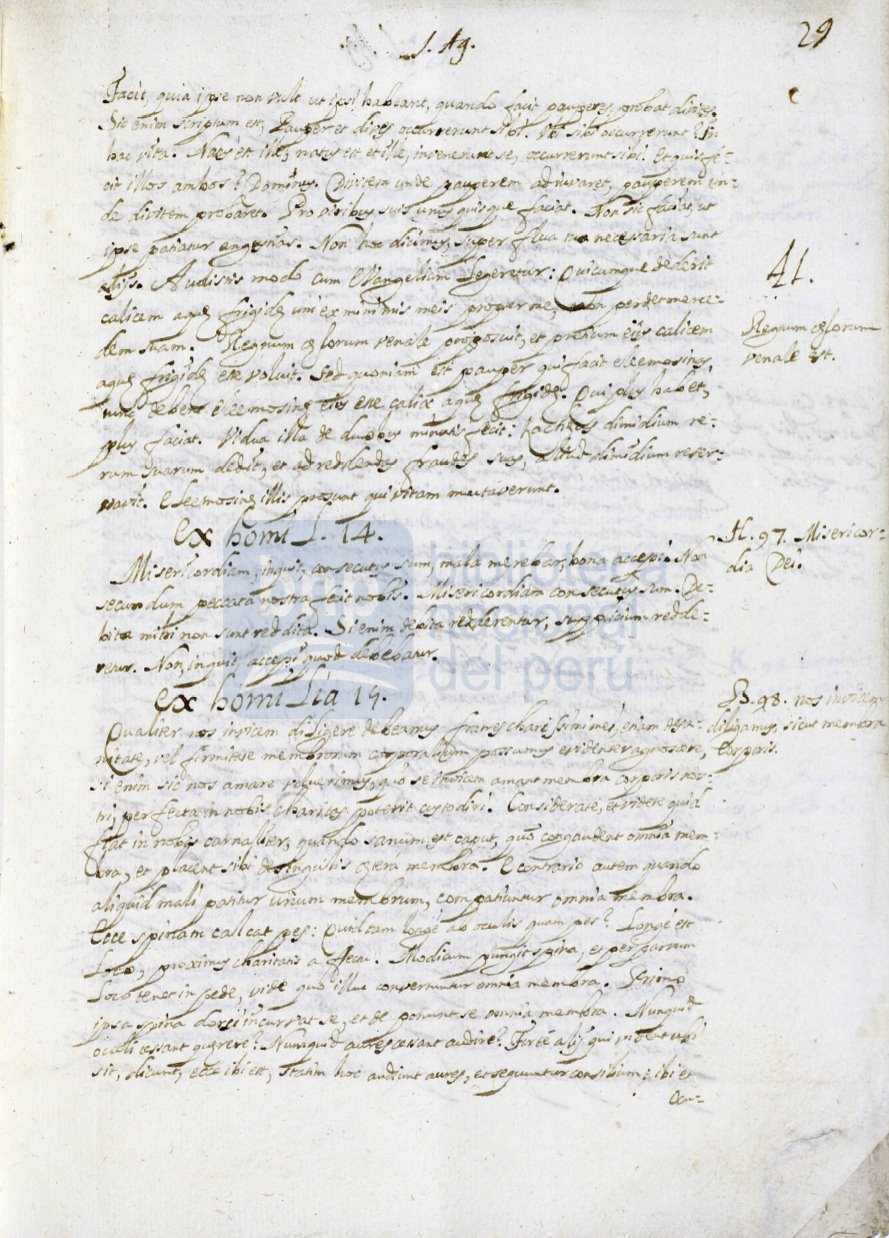 S. Ag.
29
Facit, quia ipse non vult ut ipsi habeant, quando facit pauperes, probat divites.
Sic enim scriptum est, Pauper et dives occurrerunt sibi. Ubi sibi occurrerunt? In
hac vita. Natus est ille, natus est et ille, invenerunt se, occurrerunt sibi. Et quis fe-
cit illos ambos? Dominus. Divitem unde pauperem adiuvaret, pauperem un-
de divitem probaret. Pro viribus suis unus quisque faciat. Non sic faciat ut
ipse patiatur angustias. Non hoc dicimus, super flua tua necessaria sunt
alijs. Audistis modo cum Evangelium legeretur: Quicumque dederit
calicem aquę frigidę uni ex minimis meis propter me, non perdet merce-
dem suam. Regnum cęlorum venale proposuit, et pretium eius calicem
aquę frigidę esse voluit. Sed quoniam est pauper qui facit eleemosinas,
tunc debent eleemosinę eius esse calix aquę frigidę. Qui plus habet,
plus faciat. Vidua illa de duobus minutis fecit: Zachęus dimidium re-
rum suarum dedit, et ad reddendas fraudes suas, aliud dimidium reser-
vavit. Eleemosinę illis prosunt qui vitam mutaverunt.
41.
Regnum cęlorum
venale est.
Ex homi L. 14.
Misericordiam, inquit, consecutus sum, mala merebar, bona accepi. Non
secundum peccata nostra fecit nobis. Misericordiam consecutus sum. De-
bita mihi non sunt reddita. Si enim debita redderentur, supplicium redde-
retur. Non, inquit, accepi quod debebatur.
H. 97. Misericor-
dia Dei.
Ex homilia 15.
Qualiter nos invicem diligere debeamus fratres charissimi mei, etiam de sa-
nitate, vel firmitate membrorum corporalium possumus evidenter agnoscere,
si enim sic nos amare voluerimus, quo se invicem amant membra corporis nos-
tri, perfecta in nobis charitas poterit custodiri. Considerate, et videte quid
fiat in nobis carnaliter, quando sanum est caput, quo congaudent omnia mem-
bra, et placent sibi de singulis cętera membra. E contrario autem quando
aliquid mali patitur unum membrum, compatiuntur omnia membra.
Ecce spinam calcat pes: Quid tam longe ab oculis quam pes? Longe est
loco, proximus charitatis affectu. Modicum pungit spina, et per parvum
loco tenet in pede, vide quo illuc convertuntur omnia membra. Primo
ipsa spina dorsi incurvat se, et deponunt se omnia membra. Nunquid
oculi cessant quęrere? Numquid aures cessant audire? Forte alij qui vident ubi
sit, dicunt, ecce ibi est, statim hoc audiunt aures, et sequuntur consilium: ibi et
B. 98. nos invicem
diligamus, sicut membra
corporis.
biblioteca
nacional
del perú